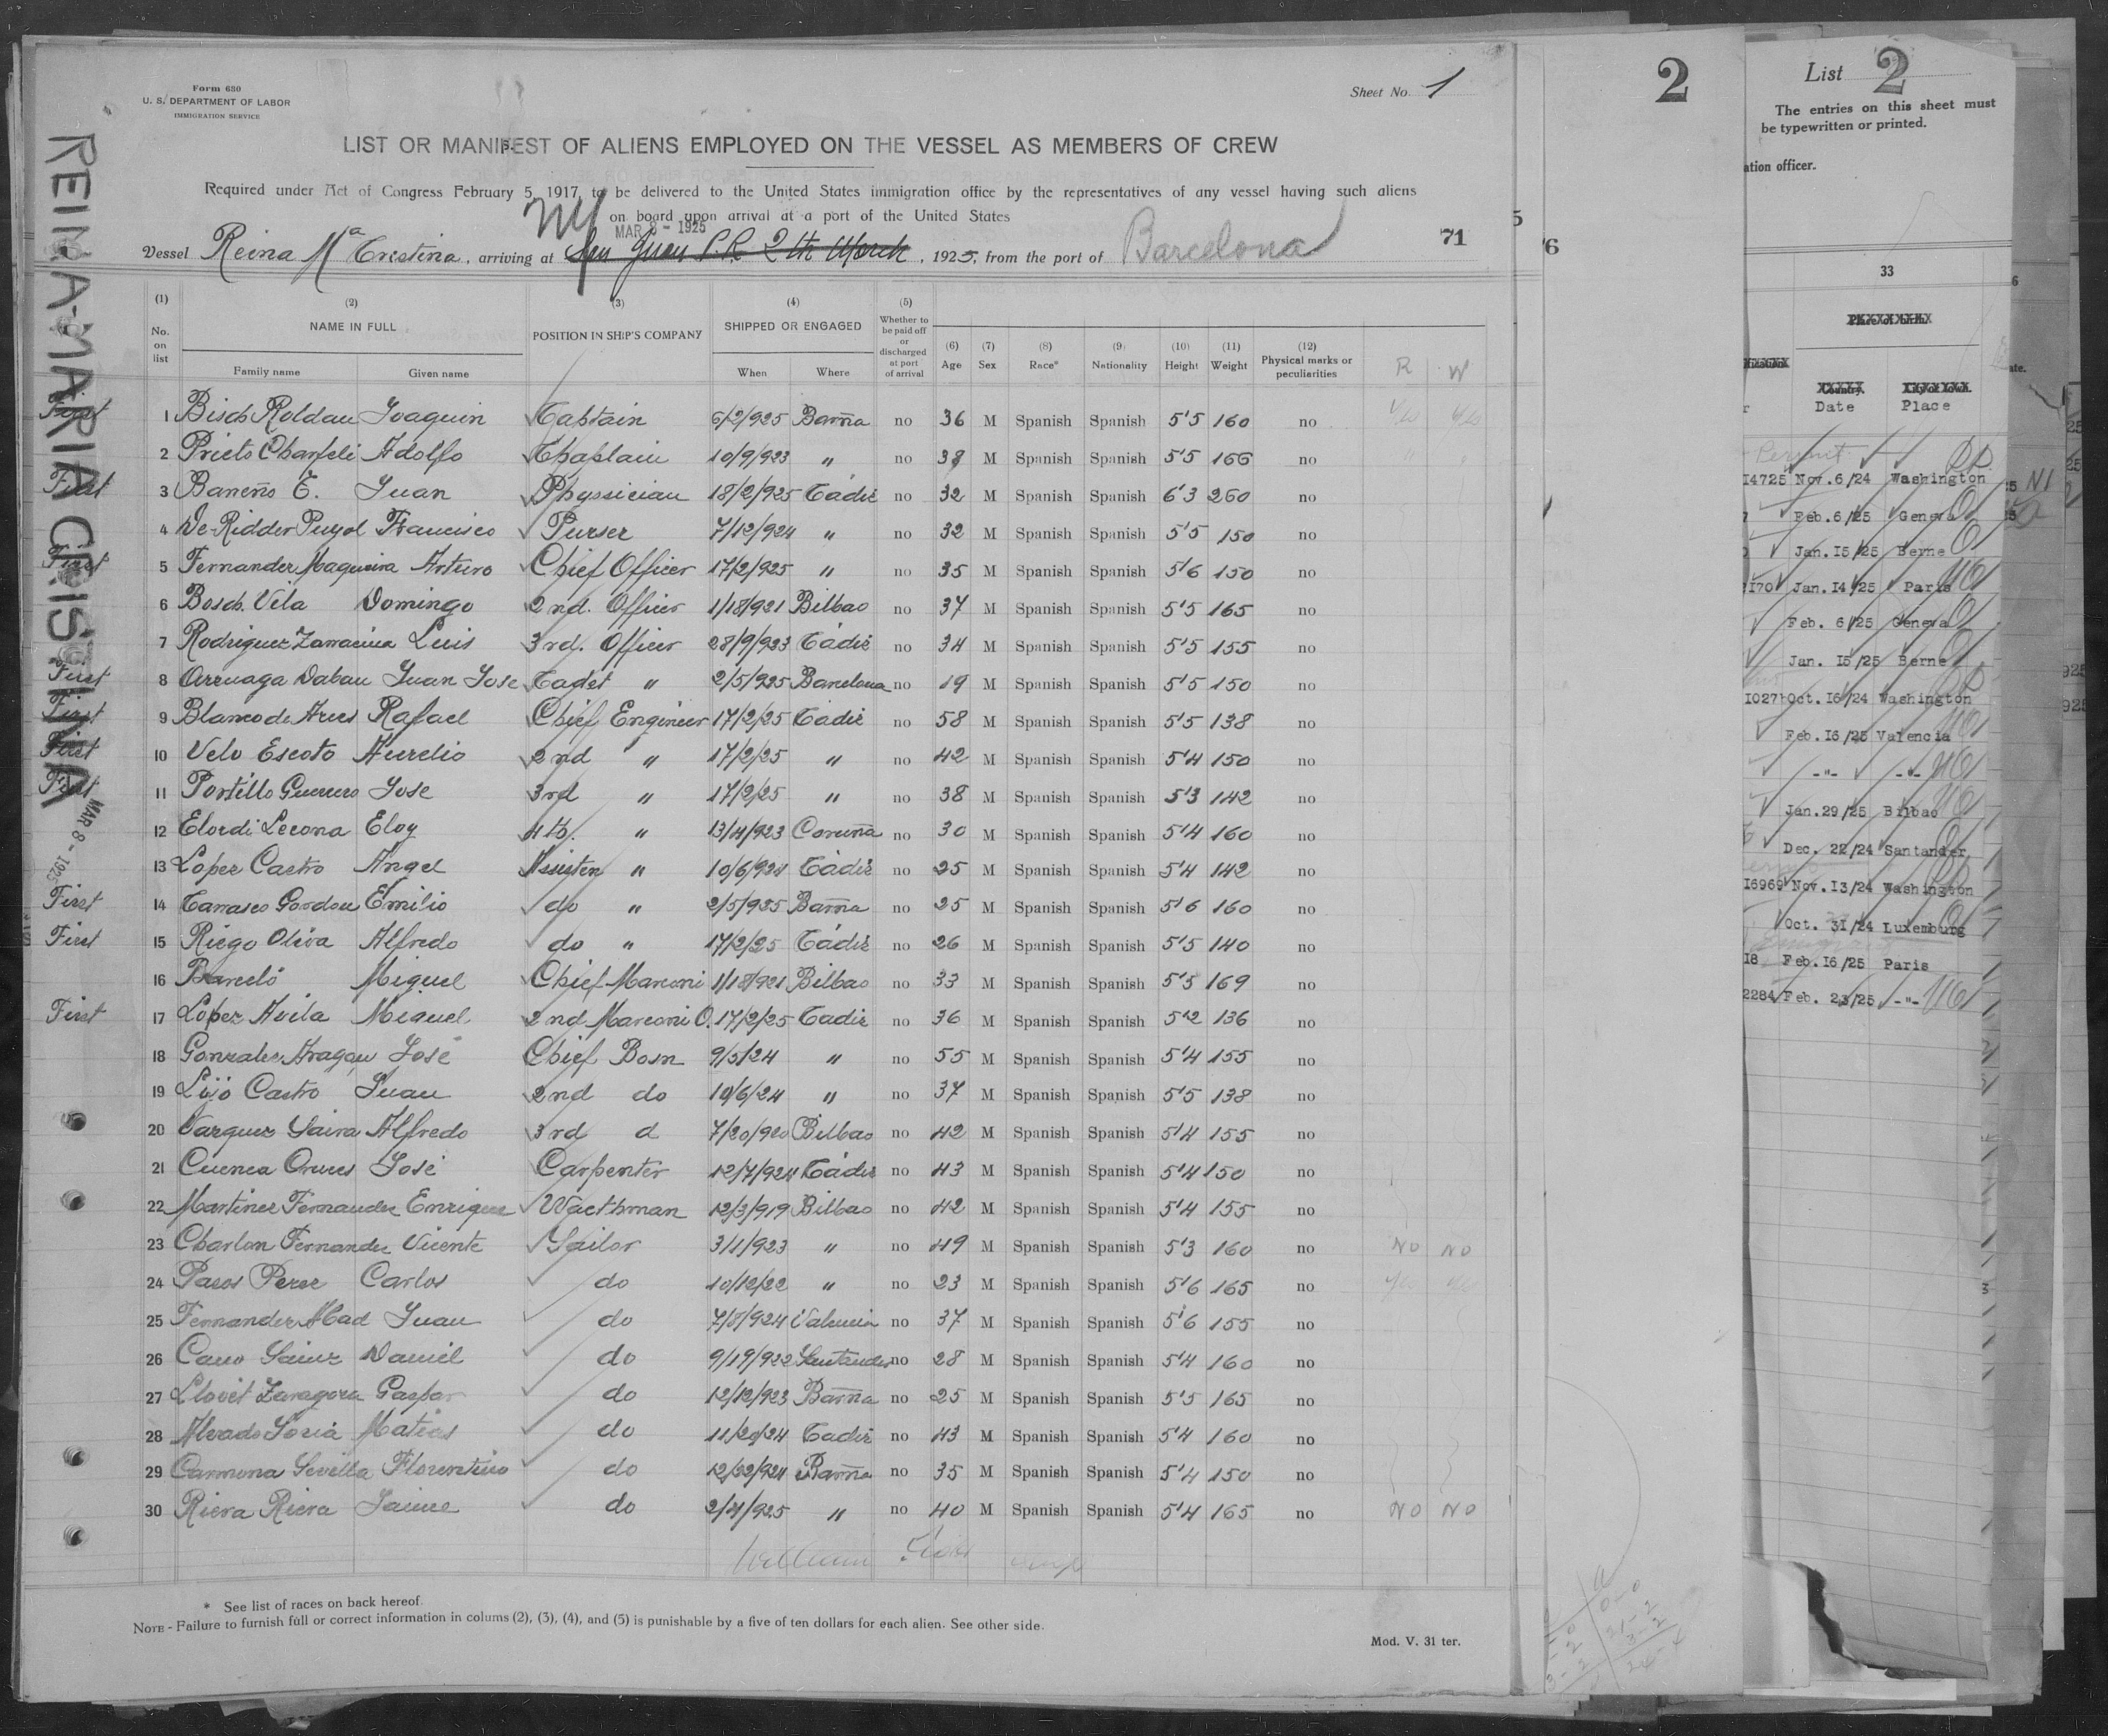 Form 680
U. S. DEPARTMENT OF LABOR
IMMIGRATION SERVICE
Sheet No. 1
LIST OR MANIFEST OF ALIENS EMPLOYED ON THE VESSEL AS MEMBERS OF CREW
Required under Act of Congress February 5, 1917, to be delivered to the United States immigration office by the representatives of any vessel having such aliens
on board upon arrival at a port of the United States
NY MAR 8 - 1925
Vessel Reina Mª Cristina, arriving at San Juan P.R. 2th March, 1925, from the port of Barcelona
71
(1) (2) (3) (4) (5)
No. on list NAME IN FULL POSITION IN SHIP'S COMPANY SHIPPED OR ENGAGED Whether to be paid off or discharged at port of arrival (6) Age (7) Sex (8) Race* (9) Nationality (10) Height (11) Weight (12) Physical marks or peculiarities R W
Family name Given name When Where
First 1 Bisch Roldan Joaquin Captain 6/2/925 Barña no 36 M Spanish Spanish 5'5 160 no yes yes
2 Prieto Adolfo Chaplain 10/9/923 " no 38 M Spanish Spanish 5'5 166 no
First 3 E. Juan Physsician 18/2/925 Cádiz no 32 M Spanish Spanish 6'3 260 no
4 De-Ridder Puyol Francisco Purser 7/12/924 " no 32 M Spanish Spanish 5'5 150 no
First 5 Fernandez Maqueira Arturo Chief Officer 17/2/925 " no 35 M Spanish Spanish 5'6 150 no
6 Bosch Vila Domingo 2nd. Officer 1/18/921 Bilbao no 37 M Spanish Spanish 5'5 165 no
7 Rodriguez Zarracina Luis 3rd. Officer 28/9/923 Cádiz no 34 M Spanish Spanish 5'5 155 no
First 8 Arruaga Dabau Juan Jose Cadet " 2/5/925 Barcelona no 19 M Spanish Spanish 5'5 150 no
First 9 Blanco de Arces Rafael Chief Engineer 17/2/25 Cádiz no 58 M Spanish Spanish 5'5 138 no
First 10 Velo Escoto Aurelio 2nd " 17/2/25 " no 42 M Spanish Spanish 5'4 150 no
First 11 Portillo Guerrero Jose 3rd " 17/2/25 " no 38 M Spanish Spanish 5'3 142 no
12 Elordi Lecona Eloy 4th. " 13/4/923 Coruña no 30 M Spanish Spanish 5'4 160 no
13 Lopez Castro Angel Assisten " 10/6/924 Cádiz no 25 M Spanish Spanish 5'4 142 no
First 14 Carrasco Gordon Emilio do " 2/5/925 Barña no 25 M Spanish Spanish 5'6 160 no
First 15 Riego Oliva Alfredo do " 17/2/25 Cádiz no 26 M Spanish Spanish 5'5 140 no
16 Barceló Miguel Chief Marconi 1/18/921 Bilbao no 33 M Spanish Spanish 5'5 169 no
First 17 Lopez Avila Miguel 2nd Marconi O. 17/2/25 Cadiz no 36 M Spanish Spanish 5'2 136 no
18 Gonzalez Aragon José Chief Bosn 9/5/24 " no 55 M Spanish Spanish 5'4 155 no
19 Lijó Castro Juan 2nd do 10/6/24 " no 37 M Spanish Spanish 5'5 138 no
20 Vazquez Alfredo 3rd d 7/20/920 Bilbao no 42 M Spanish Spanish 5'4 155 no
21 Cuenca José Carpenter 12/7/924 Cádiz no 43 M Spanish Spanish 5'4 150 no
22 Martinez Fernandez Enrique Wacthman 12/3/919 Bilbao no 42 M Spanish Spanish 5'4 155 no
23 Charlon Fernandez Vicente Sailor 3/1/923 " no 49 M Spanish Spanish 5'3 160 no NO NO
24 Pazos Perez Carlos do 10/12/22 " no 23 M Spanish Spanish 5'6 165 no yes yes
25 Fernandez Abad Juan do 7/8/924 Valencia no 37 M Spanish Spanish 5'6 155 no
26 Cano Sainz Daniel do 9/19/922 Santander no 28 M Spanish Spanish 5'4 160 no
27 Llovet Zaragoza Gaspar do 12/12/923 Barña no 25 M Spanish Spanish 5'5 165 no
28 Alvado Soria Matias do 11/20/24 Cadiz no 43 M Spanish Spanish 5'4 160 no
29 Carmona Sevilla Florentino do 12/22/924 Barña no 35 M Spanish Spanish 5'4 150 no
30 Riera Riera Jaime do 2/4/925 " no 40 M Spanish Spanish 5'4 165 no NO NO
* See list of races on back hereof.
NOTE - Failure to furnish full or correct information in colums (2), (3), (4), and (5) is punishable by a five of ten dollars for each alien. See other side.
Mod. V. 31 ter.
REINA-MARIA CRISTINA
MAR 8 - 1925
2
5
6
List 2
The entries on this sheet must
be typewritten or printed.
ation officer.
33
Place of birth
Country City or town
Date Place
Permit
14725 Nov. 6/24 Washington
Feb. 6/25 Geneva
Jan. 15/25 Berne
Jan. 14/25 Paris
Feb. 6/25 Geneva
Jan. 15/25 Berne
Oct. 16/24 Washington
Feb. 16/25 Valencia
-"- -"-
Jan. 29/25 Bilbao
Dec. 22/24 Santander
16969 Nov. 13/24 Washington
Oct. 31/24 Luxemburg
18 Feb. 16/25 Paris
2284 Feb. 23/25 -"-